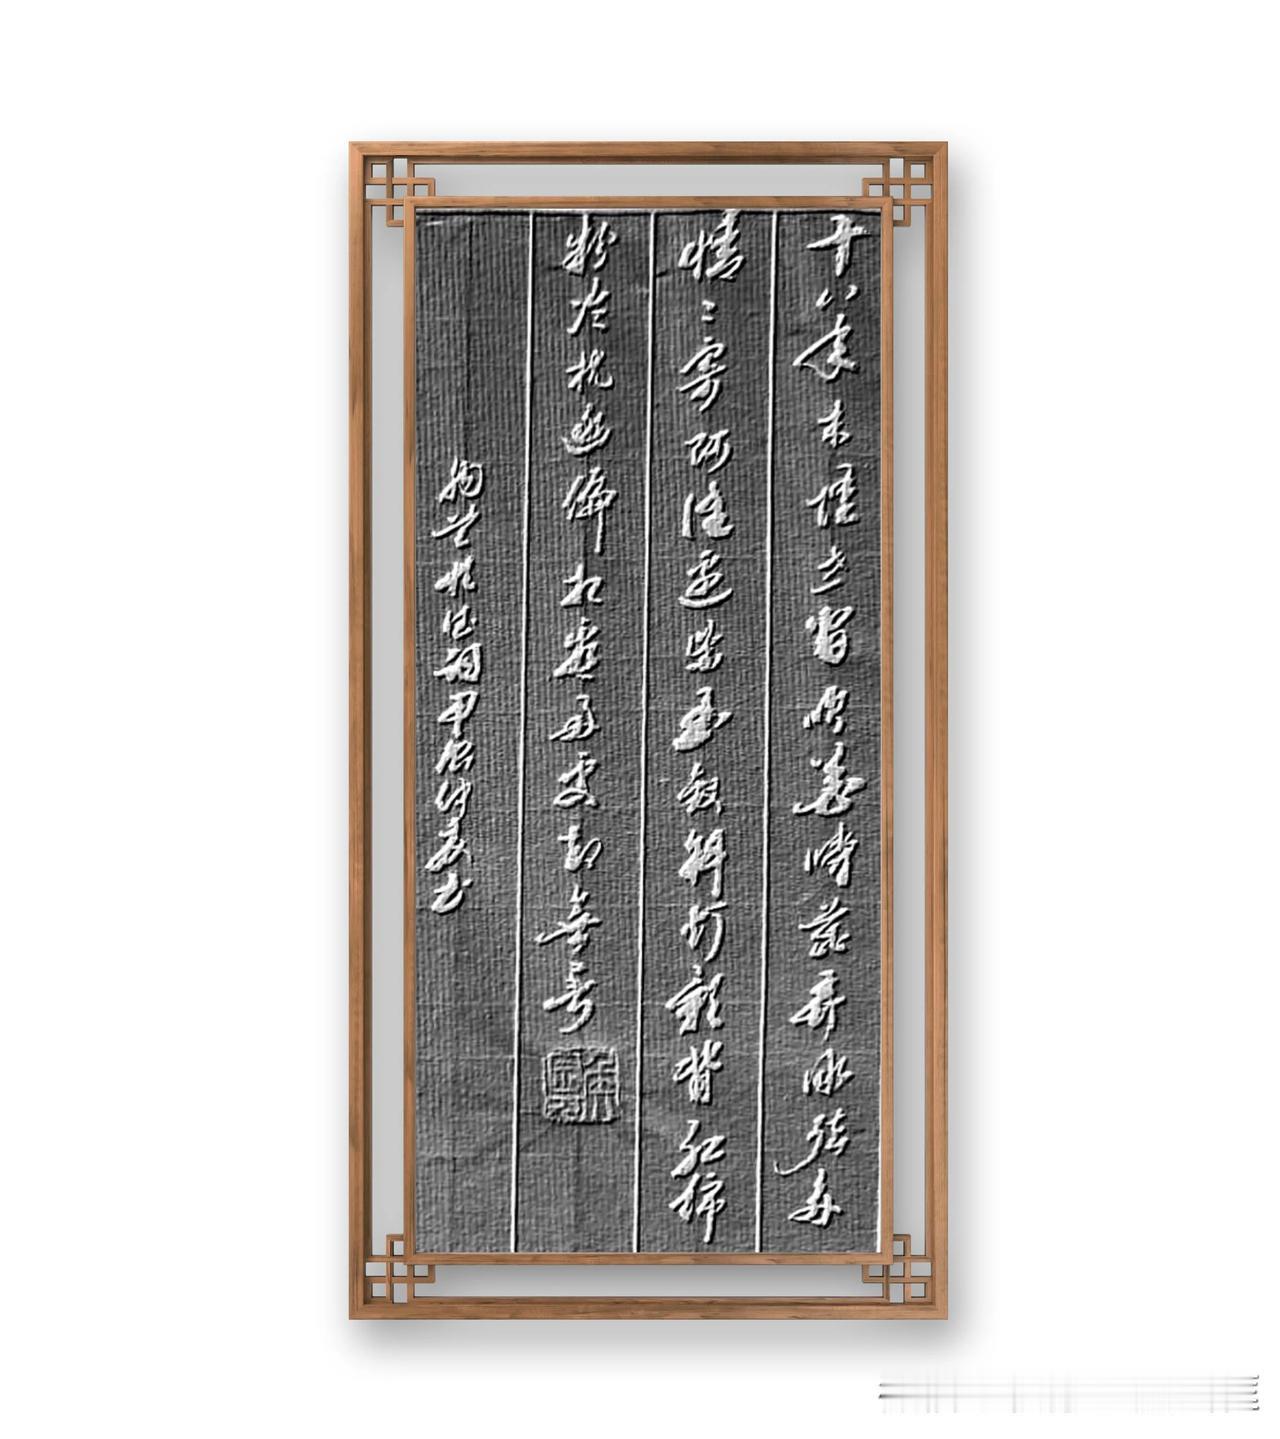 十八年来堕世間吹花嚼蕊弄冰弦多
情〻寄阿誰邊紫玉釵斜灯影背紅綿
粉冷枕函偏相看好處却無言
納兰性德詞甲辰仲夏书